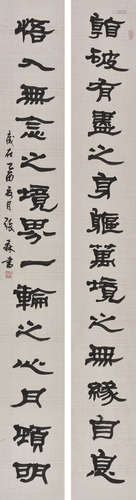 破有盡之身軀萬境之無緣自息
悟入無念之境界一輪之心月頓明
歲在乙酉夏月張森書